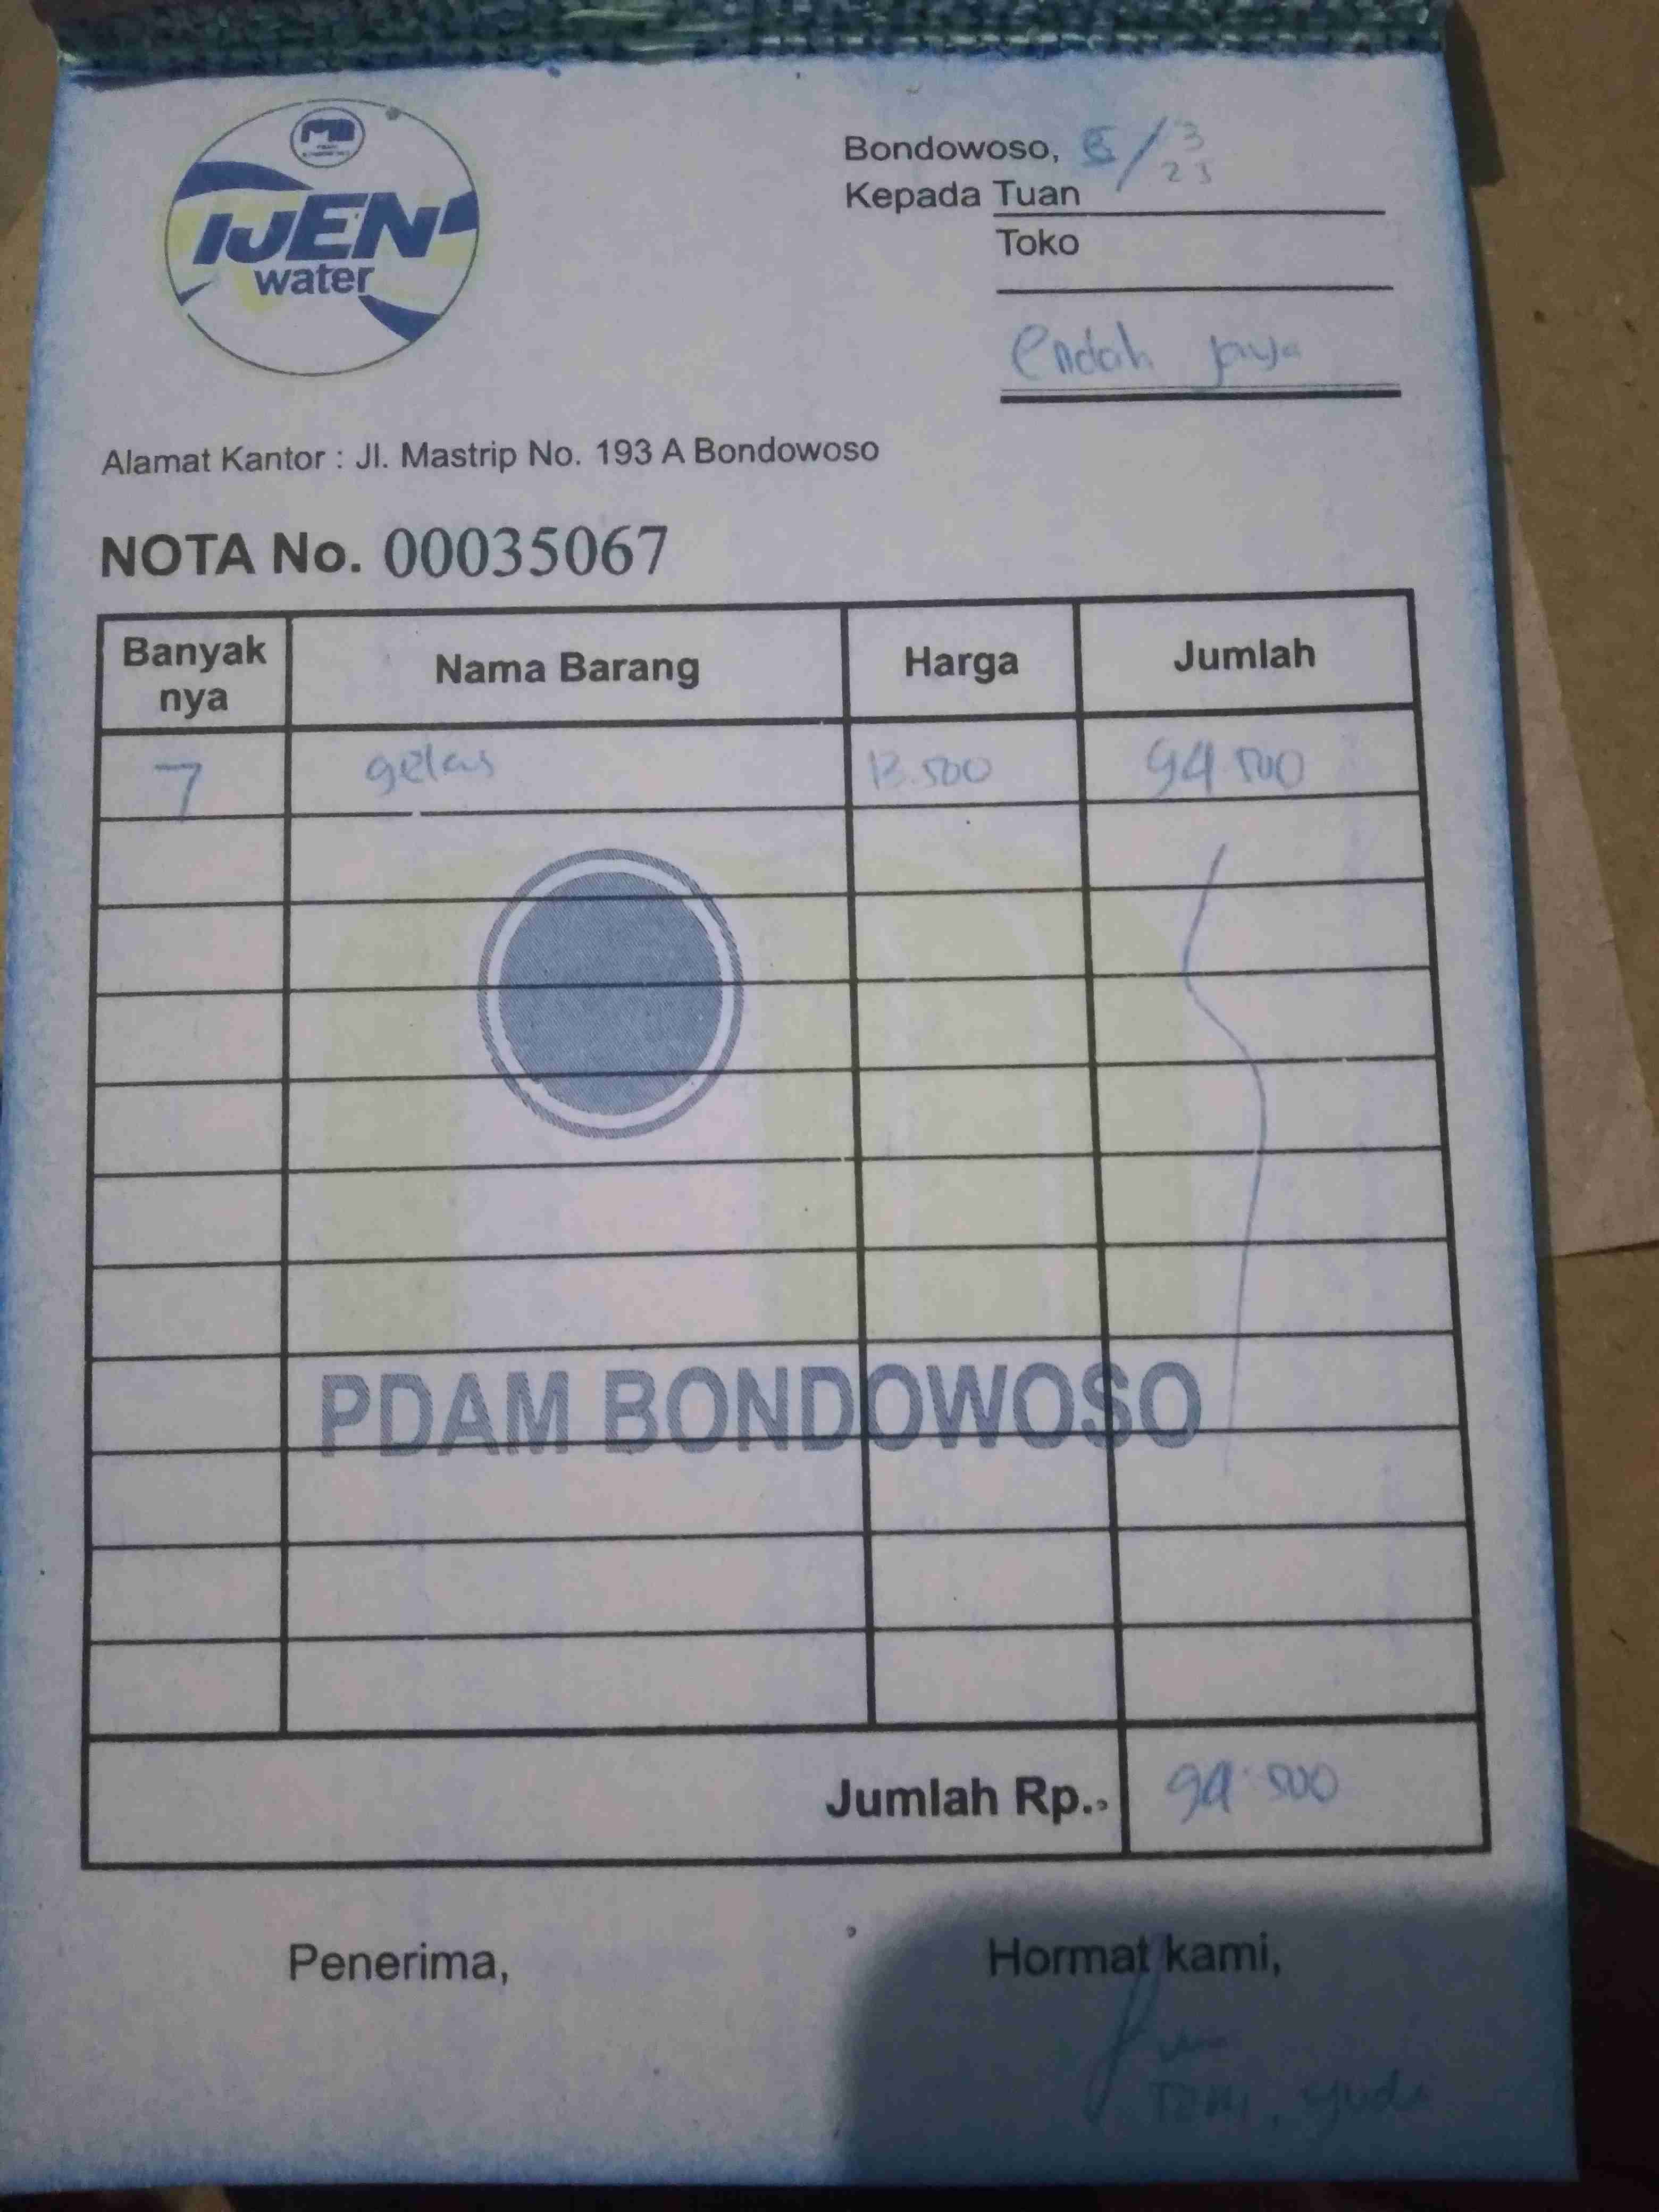 IJEN
water
Bondowoso, 5/3
23
Kepada Tuan
Toko
Endah jaya
Alamat Kantor : Jl. Mastrip No. 193 A Bondowoso
NOTA No. 00035067
Banyak nya Nama Barang Harga Jumlah
7 gelas 13.500 94.500
PDAM BONDOWOSO
Jumlah Rp.. 94.500
Penerima, Hormat kami,